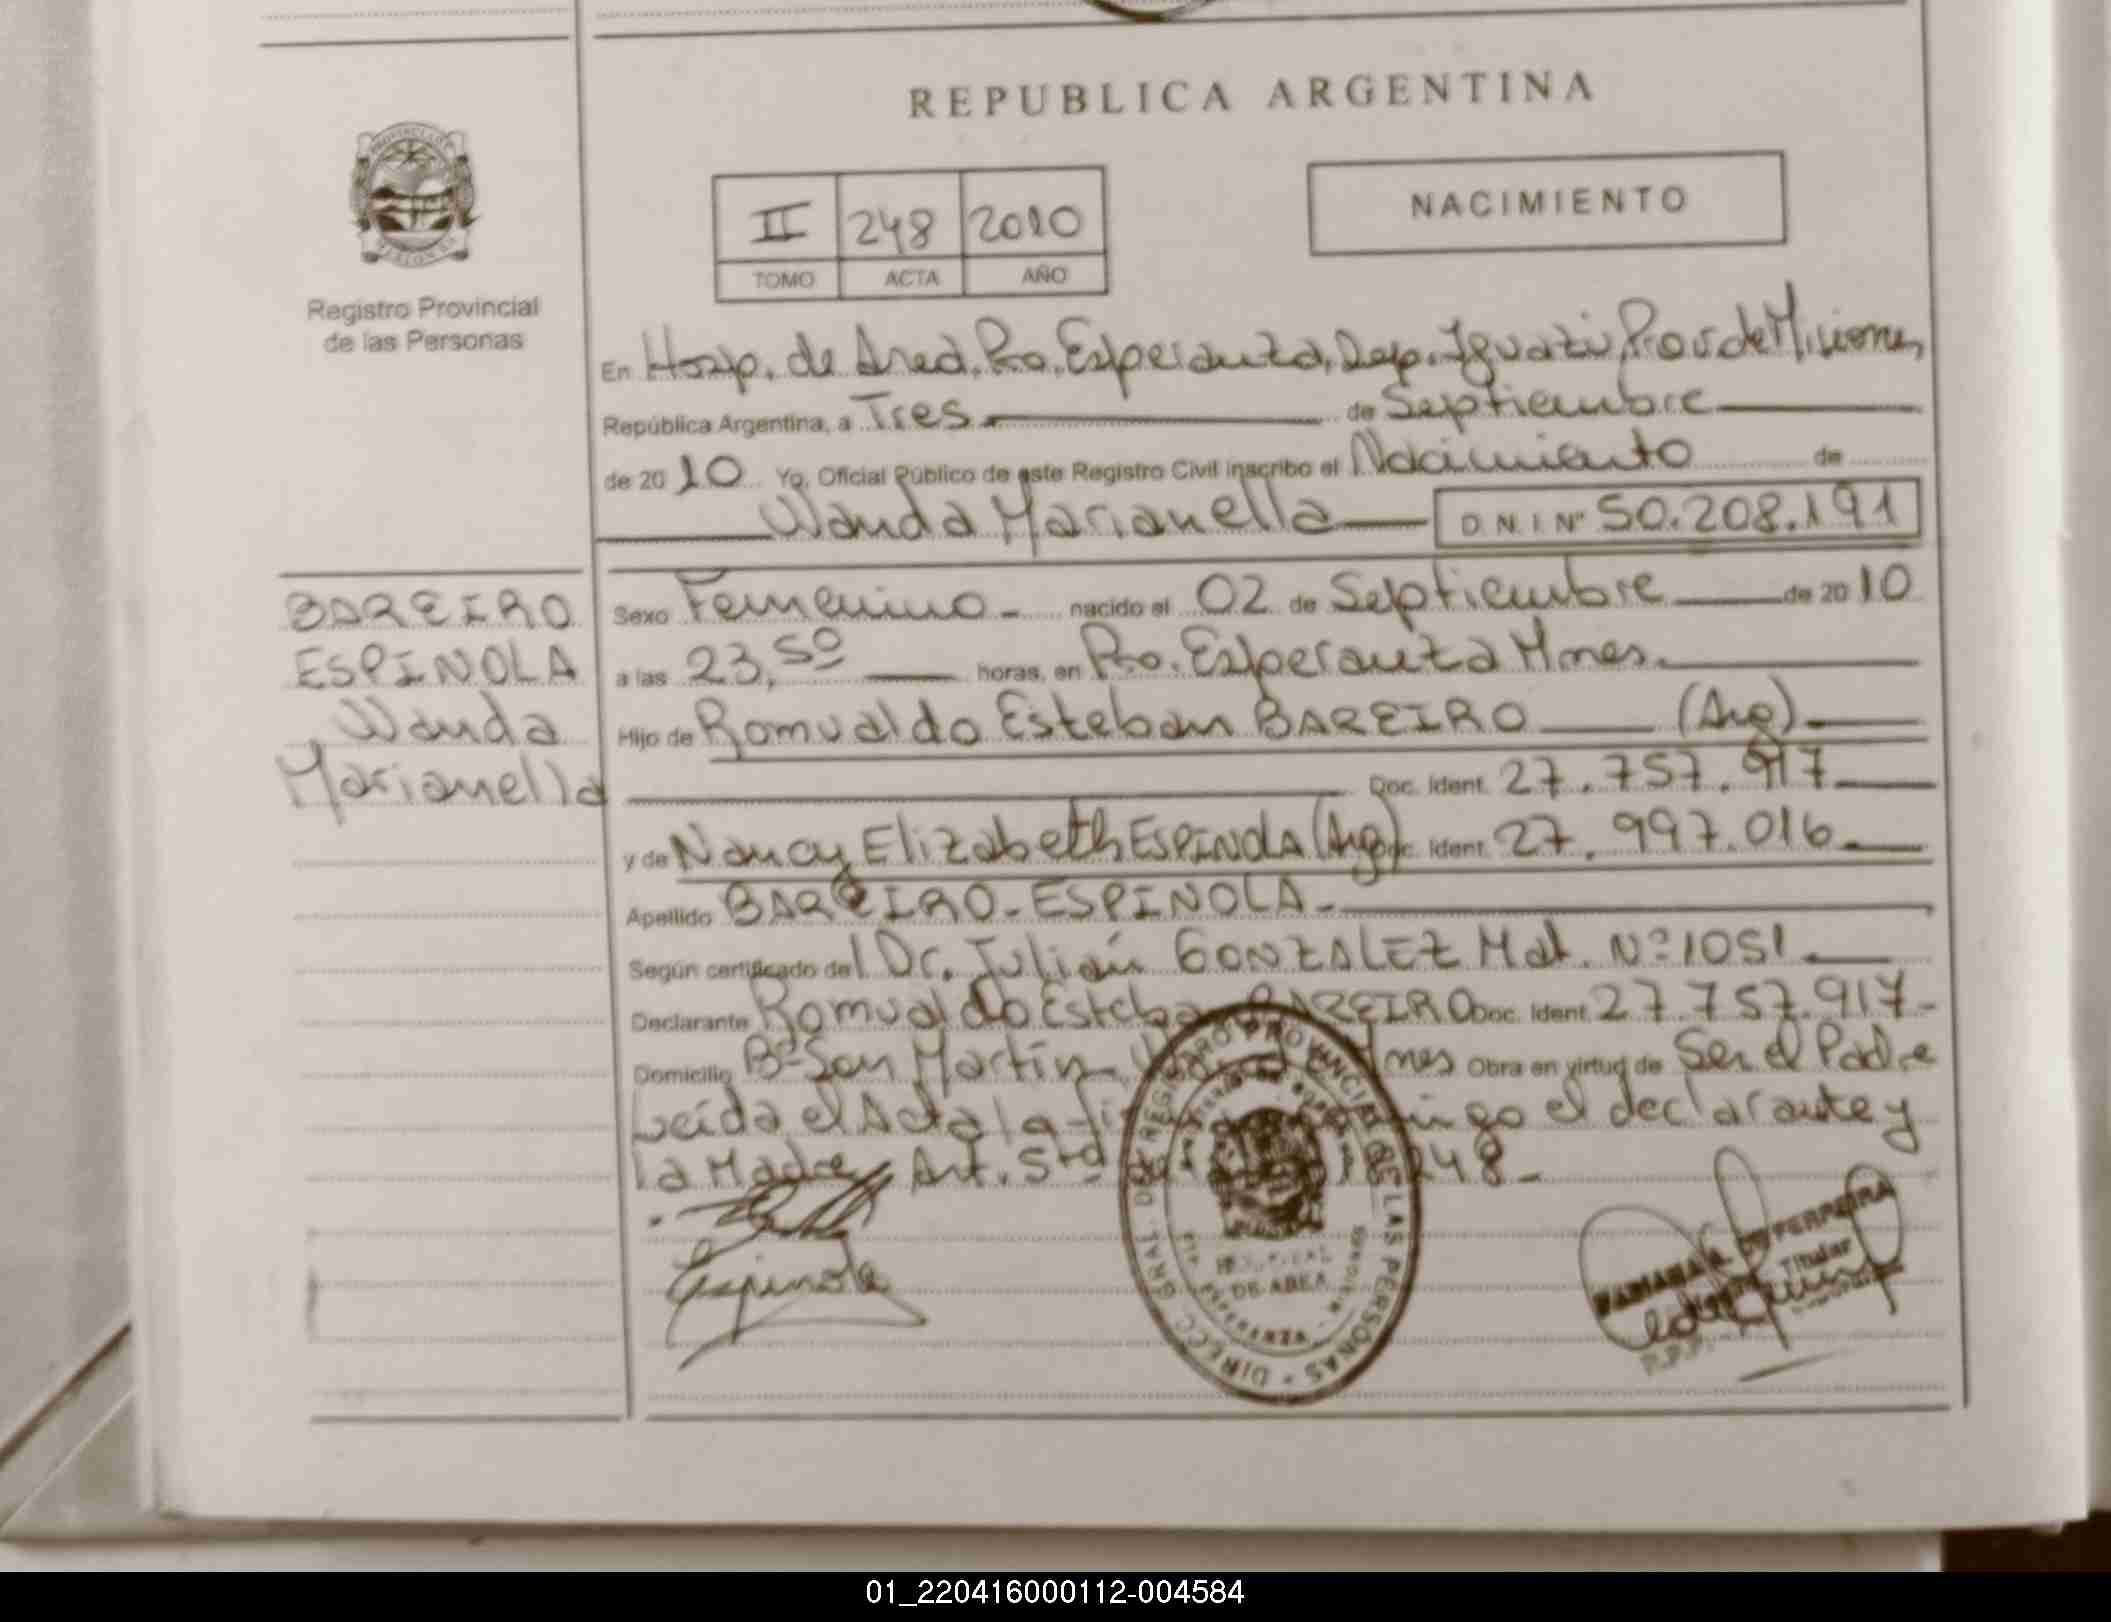 REPUBLICA ARGENTINA
NACIMIENTO
II 248 2010
TOMO ACTA AÑO
Registro Provincial
de las Personas
En Hosp. de Area, Pto. Esperanza, Dep. Iguazú, Prov de Misiones,
República Argentina, a Tres de Septiembre
de 2010 Yo, Oficial Público de este Registro Civil inscribo el Nacimiento de
Wanda Marianella D.N.I.Nº 50.208.191
BARREIRO
ESPINOLA
Wanda
Marianella
Sexo Femenino - nacido el 02 de Septiembre de 2010
a las 23,50 horas, en Pto. Esperanza Mnes.
Hijo de Romualdo Esteban BAREIRO (Arg)
Doc. Ident. 27.757.917
y de Nancy Elizabeth ESPINOLA (Arg) Doc. Ident. 27.997.016
Apellido BAREIRO - ESPINOLA -
Según certificado del Dr. Julián GONZALEZ Mat. Nº 1051
Declarante Romualdo Esteban BAREIRO Doc. Ident. 27.757.917 -
Domicilio Bº San Martín Mnes Obra en virtud de Ser el Padre
Leída el Acta la el declarante y
la Madre, Art. 5to 248 -
Espinola
DIRECC. GRAL. DEL REGISTRO PROVINCIAL DE LAS PERSONAS
HOSPITAL
DE AREA
FERREIRA
Titular
R.P.P.
01_220416000112-004584